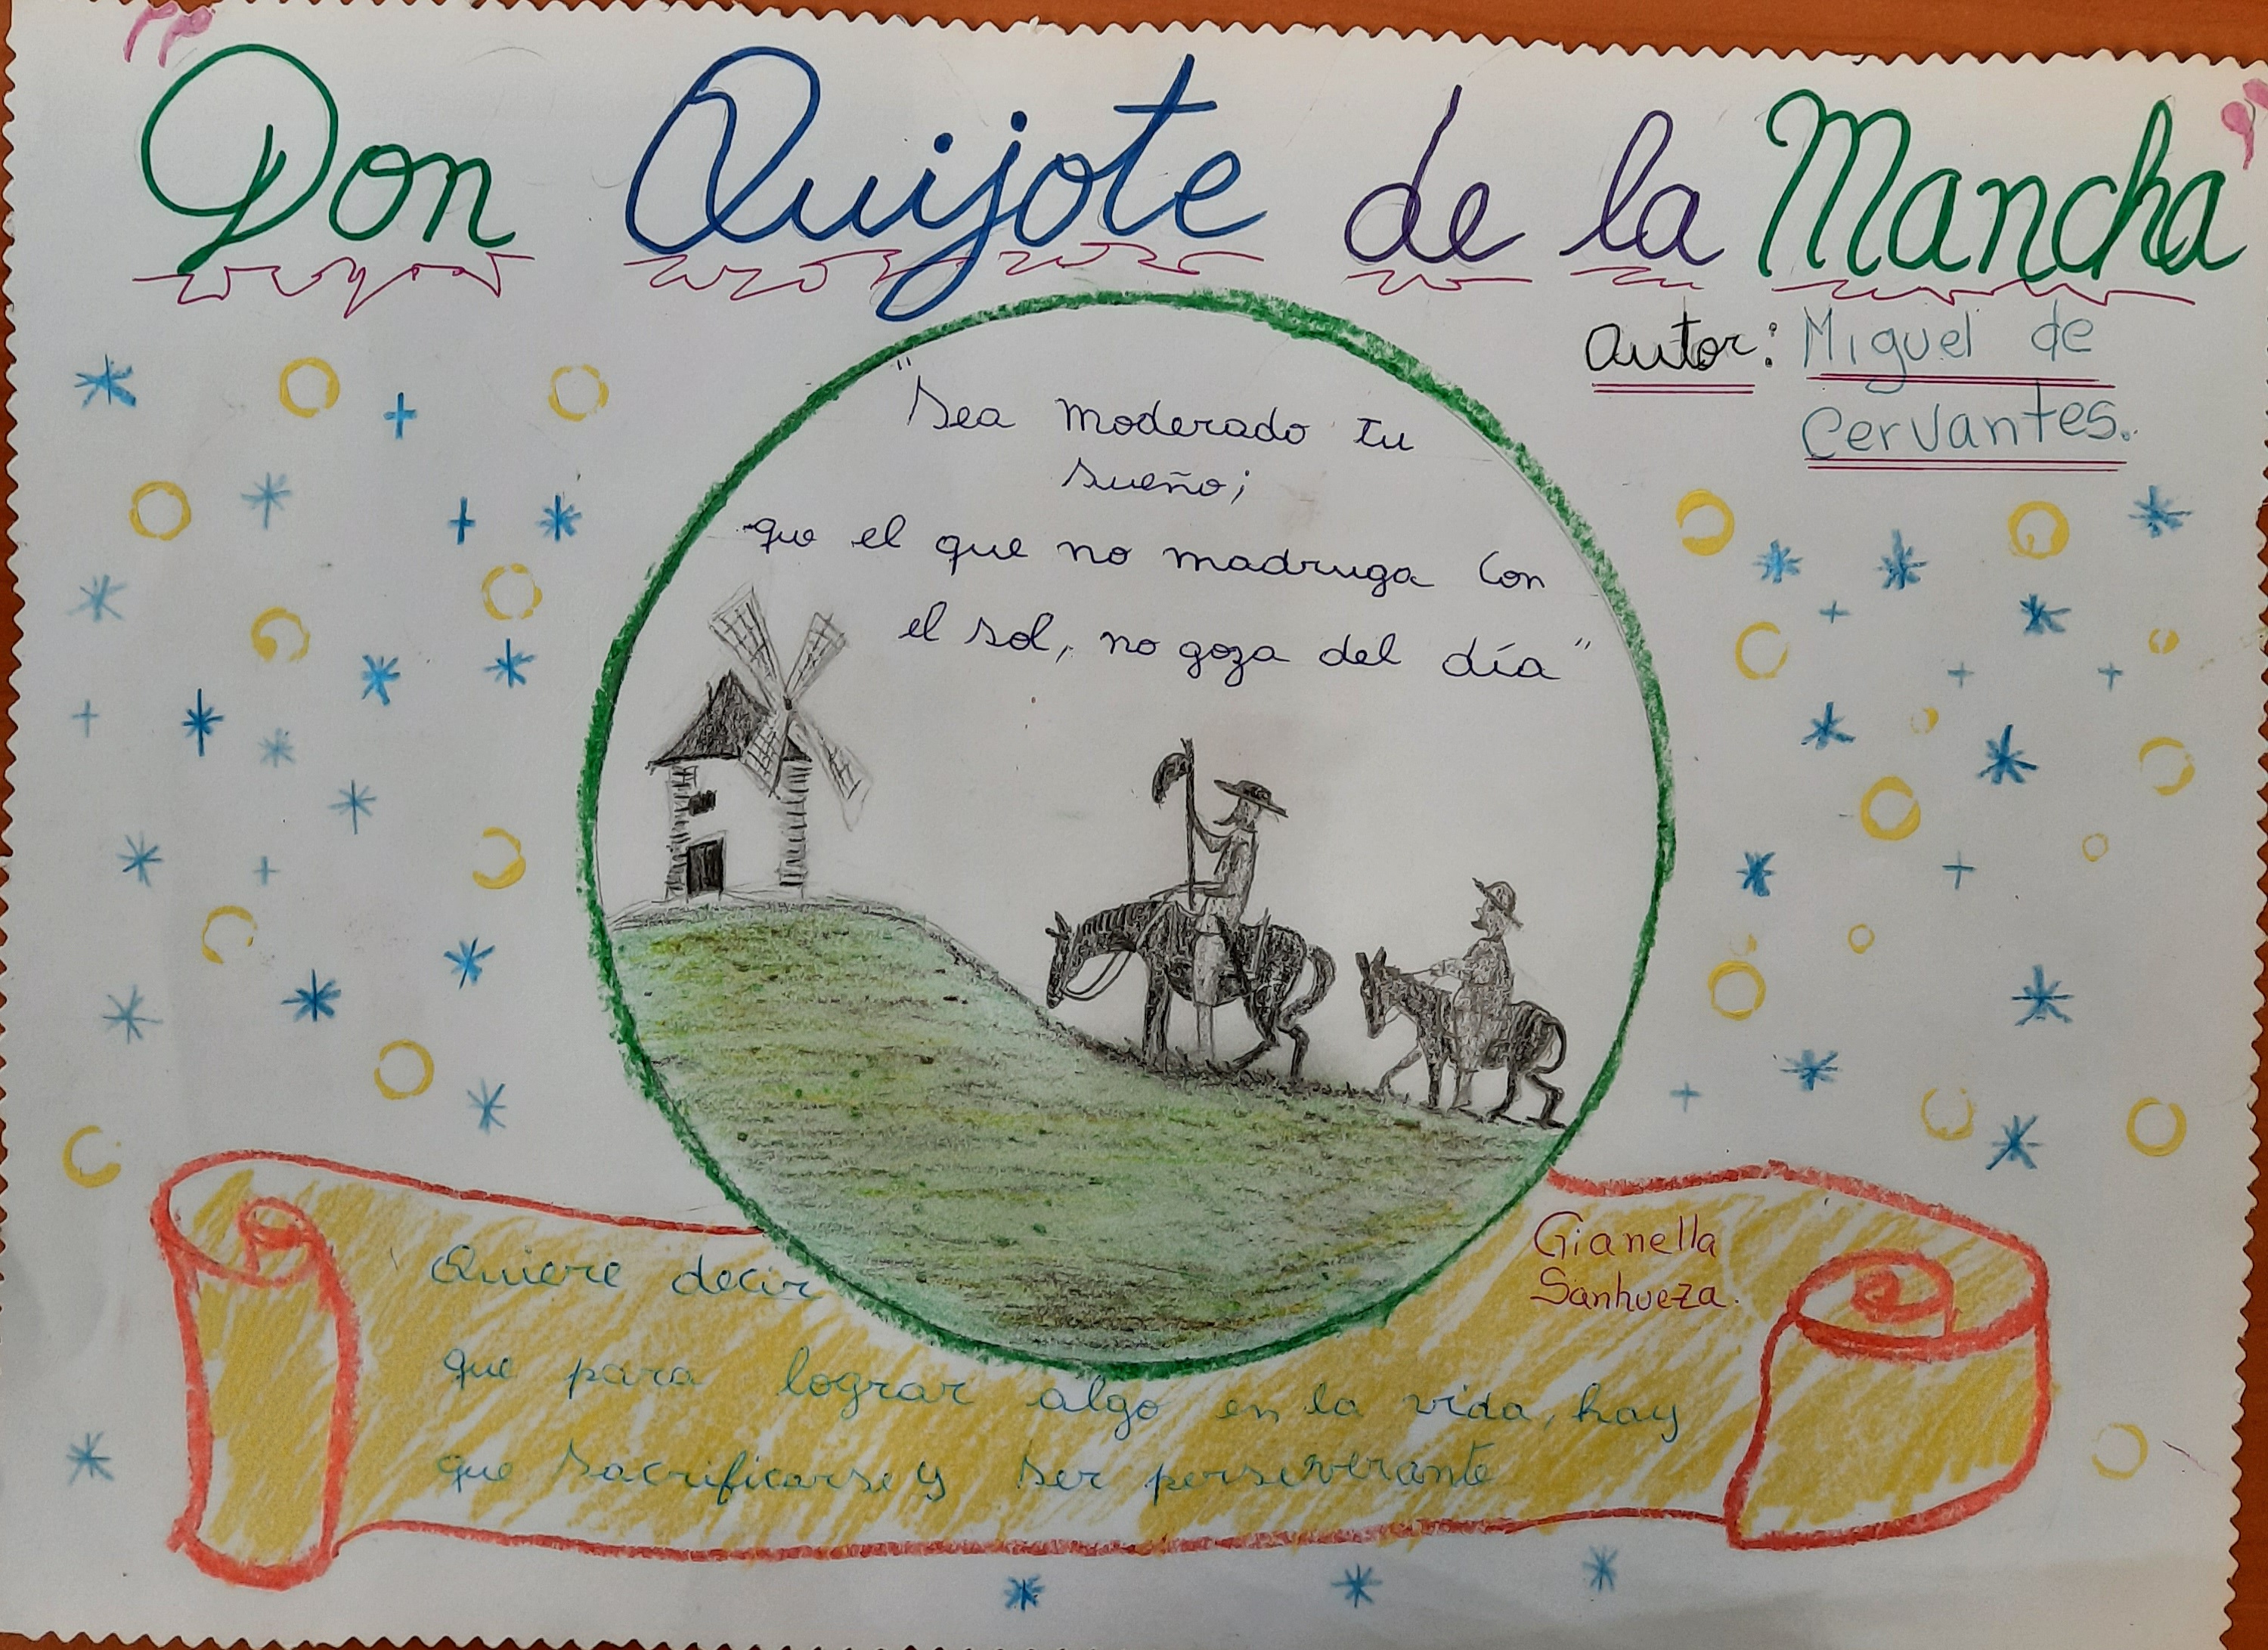 "Don Quijote de la Mancha"
autor: Miguel de
Cervantes.
"Sea moderado tu
sueño;
que el que no madruga con
el sol, no goza del día"
Gianella
Sanhueza.
Quiere decir
que para lograr algo en la vida, hay
que sacrificarse y ser perseverante